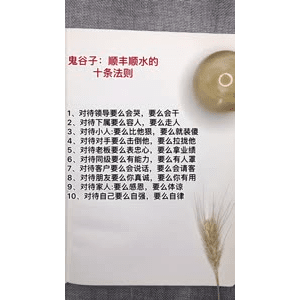 鬼谷子：顺丰顺水的
十条法则
1、对待领导要么会哭，要么会干
2、对待下属要么容人，要么走人
3、对待小人:要么比他狠，要么就装傻
4、对待对手要么击倒他，要么拉拢他
5、对待老板要么表忠心，要么拿业绩
6、对待同级要么有能力，要么有人罩
7、对待客户要么会说话，要么会请客
8、对待朋友要么你真诚，要么你有用
9、对待家人:要么感恩，要么体谅
10、对待自己要么自强，要么自律